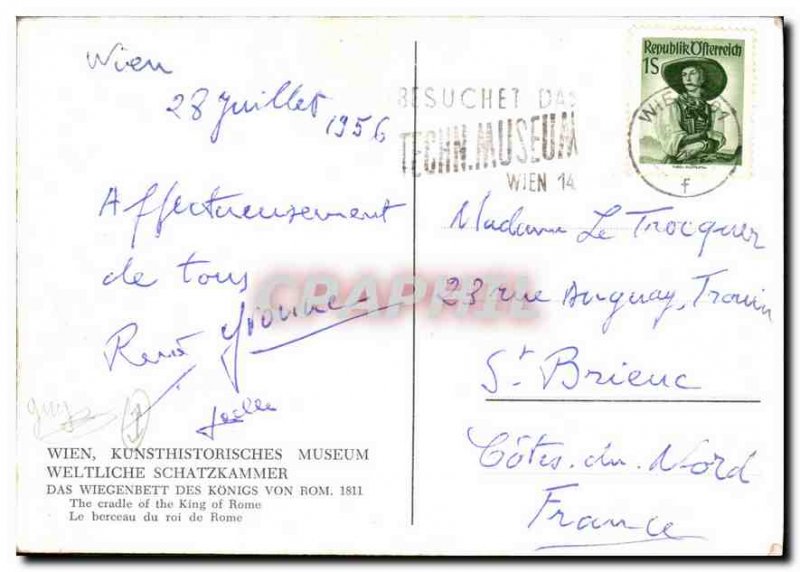 Wien
28 Juillet 1956
Affectueusement
de tous
René Yvonne
Joelle
guy
WIEN, KUNSTHISTORISCHES MUSEUM
WELTLICHE SCHATZKAMMER
DAS WIEGENBETT DES KÖNIGS VON ROM. 1811
The cradle of the King of Rome
Le berceau du roi de Rome
BESUCHET DAS
TECHN. MUSEUM
WIEN 14
Republik Österreich
1S
WIEN
f
Madame Le Trocquer
23 rue Duguay, Trouin
St Brieuc
Côtes-du-Nord
France
CRAPHIL